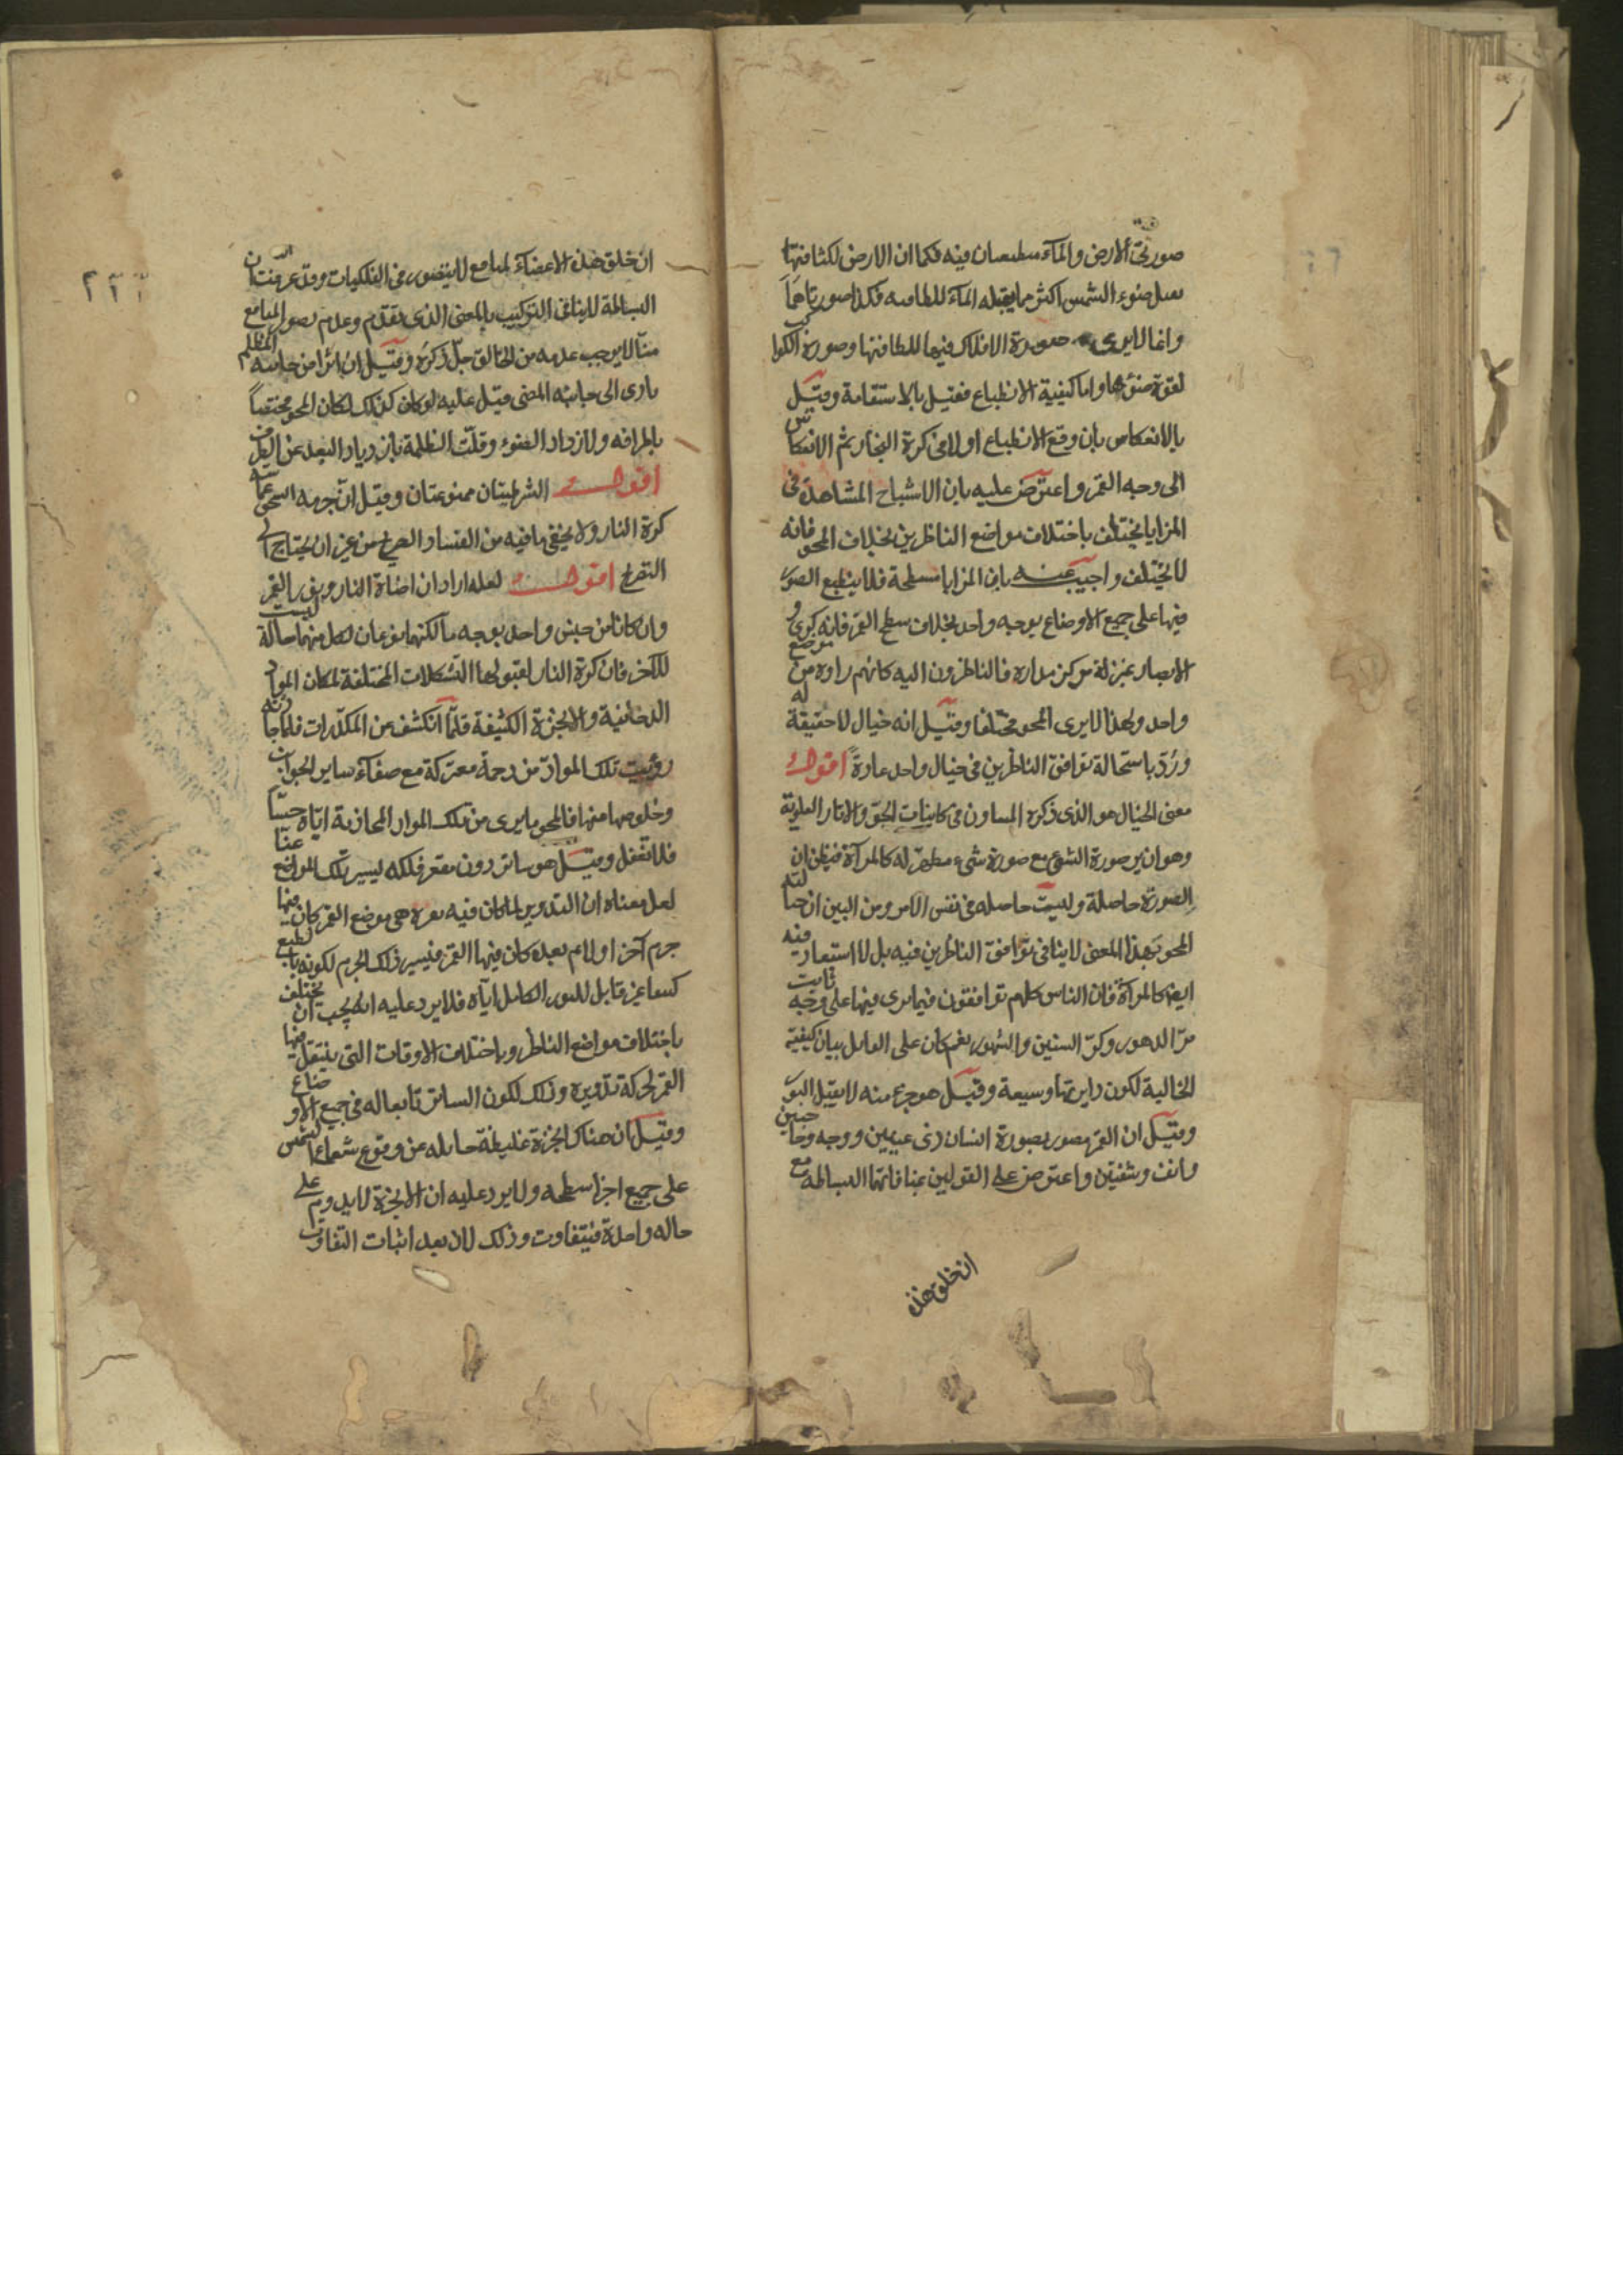 صورتى الأرض والمآء منطبعتان فيه فكما ان الارض لكثافتها
يقبل ضوء الشمس اكثر مما يقبله المآء للطافته فكذا صورتاهما
وانما لا يرى صورة الافلاك فيها للطافتها وصورة الكواكب
لقوة ضوئها واما كيفية الانطباع فقيل بالاستقامة وقيل
بالانعكاس بان وقع الانطباع اولا فى كرة البخار ثم الانعكاس
الى وجه القمر واعترض عليه بان الاشباح المشاهدة فى
المرايا يختلف باختلاف مواضع الناظرين بخلاف المحو فانه
لا يختلف واجيب عنه بان المرايا مسطحة فلا ينطبع الصور
فيها على جميع الاوضاع بوجه واحد بخلاف سطح القمر فانه كرى و
الابصار بمنزلة مركز مداره فالناظرون اليه كانهم راوه من موضع
واحد ولهذا لا يرى المحو مختلفا وقيل انه خيال لا حقيقة له
ورُدّ باستحالة توافق الناظرين فى خيال واحد عادةً اقول
معنى الخيال هو الذى ذكره المساون فى كاينات الجوّ والاثار العلوية
وهو ان ير صورة الشىء مع صورة شىء مظهر له كالمرآة فيظن ان
الصورة حاصلة وليست حاصله فى نفس الامر ومن البين ان خيالية
المحو بهذا المعنى لا ينافى توافق الناظرين فيه بل لا استبعاد فيه
ايضا كالمرآة فان الناس كلهم توافقون فيما يرى فيها على وجه ثابت
مرّ الدهور وكرّ السنين والشهور نعم كان على القايل بيان كيفية
الخالية لكون دايرتها وسيعة وقيل هو جزء منه لا يقبل النور
وقيل ان القمر مصور بصورة انسان ذى عينين ووجه وحاجبين
وانف وشفتين واعترض على القولين بمنافاتهما البساطه مع
ان خلق هذه
ان خلق هذه الاعضاء لمنافع لا يتصور فى الفلكيات وقد عرفت ان
البساطة لا ينافى التركيب بالمعنى الذى تقدّم وعدم تصور المنافع
منّا لا يوجب عدمه من الخالق جلّ ذكره وقيل ان اثرا من جانبه المظلم
يادى الى جانبه المضى قيل عليه لو كان كذلك لكان المحو مختصاً
باطرافه ولازداد الضوء وقلّت الظلمة بازدياد البعد عن الطرف
اقول الشرطيتان ممنوعتان وقيل ان جرمه انمحى عماسّه
كرة النار ولا يخفى ما فيه من الفساد الصريح من غير ان يحتاج الى
التصريح اقول لعله اراد ان اضاة النار ونور القمر
وان كانا من جنس واحد بوجه ما لكنهما نوعان لكل منهما حالة ليست
للاخر فان كرة النار لقبولها التشكلات المختلفة لمكان المواد
الدخانية والابخرة الكثيفة قلّما انكشف عن المكدّرات فلما جاورته
رؤيت تلك الموادّ من رحمة معتركة مع صفاء ساير الجوانب
وخلوصها منها فالمحو ما يرى من تلك المواد المحاذية ايّاه حسّا
فلا تغفل وقيل هو ساتر دون مقعر فلكه يستر تلك المواضع عنّا
لعل معناه ان التدوير لما كان فيه نقرة هى موضع القمر كان فيها
جرم آخر اولا ثم بعده كان فيها القمر فيستر ذلك الجرم لكونه بالطبع
كثيفا غير قابل للنور الكامل ايّاه فلا يرد عليه انه يجب ان يختلف
باختلاف مواضع الناظر وباختلاف الاوقات التى ينتقل فيها
القمر بحركة تدويره وذلك لكون الساتر تابعا له فى جميع الاوضاع
وقيل ان هناك ابخرة غليظة حايله عن وقوع شعاع الشمس
على جميع اجزا سطحه ولا يرد عليه ان الابخرة لا يدوم على
حاله واحدة فيتفاوت وذلك لان بعد اثبات التفاوت